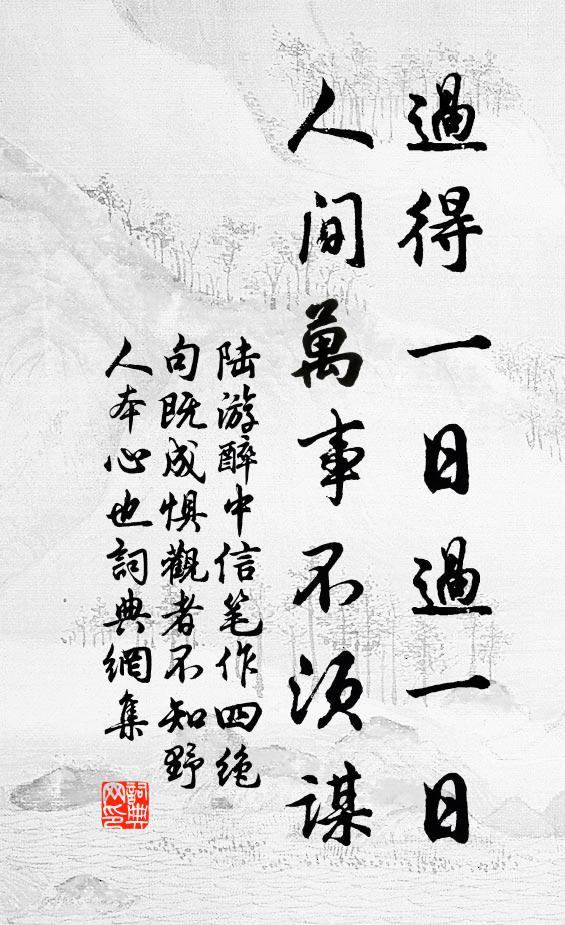 過得一日過一日
人間萬事不須謀
陆游醉中信笔作四绝
句既成惧觀者不知野
人本心也詞典網集
詞典
网印